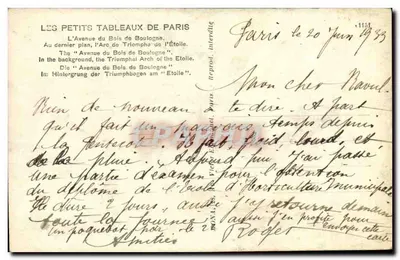 LES PETITS TABLEAUX DE PARIS
L'Avenue du Bois de Boulogne.
Au dernier plan, l'Arc de Triomphe de l'Étoile.
The "Avenue du Bois de Boulogne"
In the background, the Triumphal Arch of the Etoile.
Die "Avenue du Bois de Boulogne"
Im Hintergrund der Triumphbogen am "Etoile".
Paris le 20 Juin 1933
Mon cher
Rien de nouveau à te dire. A part
qu'il fait un mauvais temps depuis
la . Il fait froid, lourd, et
de la pluie. Aujourd'hui j'ai passé
une partie d'examen pour l'obtention
du diplôme de l'Ecole d'Horticulture municipale
Il dure 2 jours, aussi j'y retourne demain
toute la journée. j'en profite pour
un paquebot, par le envoyer cette
Amitiés carte
Roger